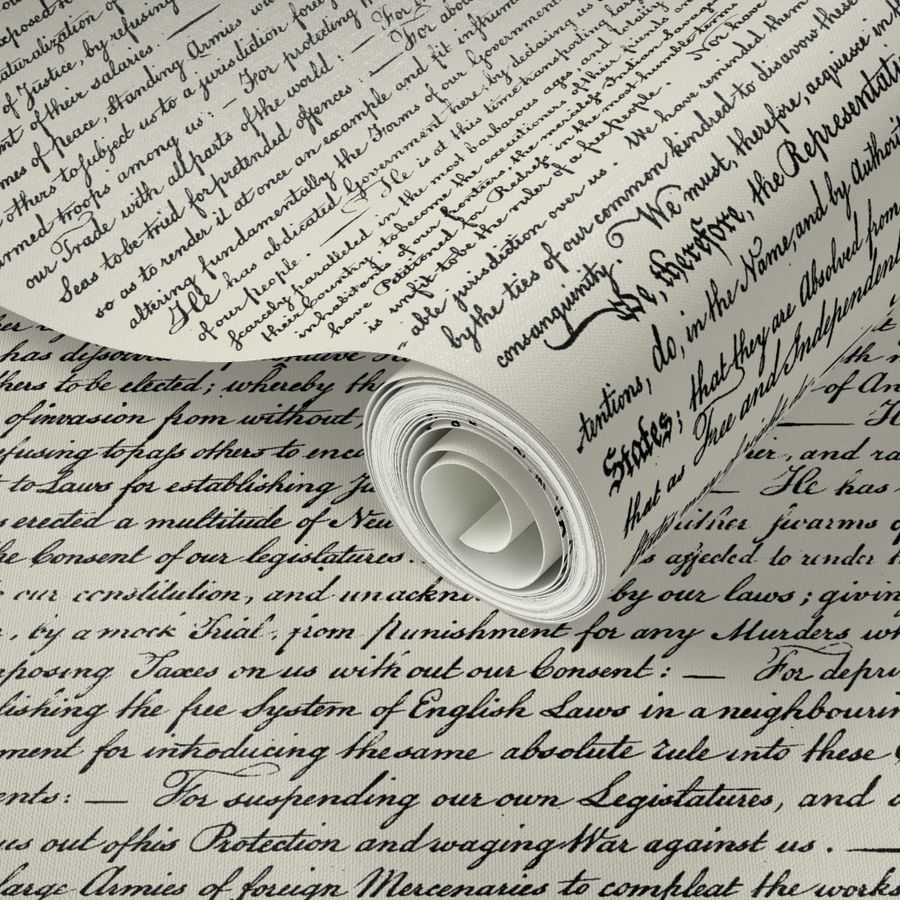 of Justice, by refusing
of their salaries. —
of peace, Standing Armies
others to subject us to a jurisdiction
armed troops among us: — For protecting
our Trade with all parts of the world: — For
Seas to be tried for pretended offences: — For
so as to render it at once an example and fit
altering fundamentally the Forms of our Government
He has abdicated Government here, by declaring us
of our people. — He is at this time transporting large
scarcely paralleled in the most barbarous ages, and totally
their Country, to become the executioners of their friends and
inhabitants of our frontiers, the merciless Indian Savages
have Petitioned for Redress in the most humble terms
is unfit to be the ruler of a free people. Nor have
able jurisdiction over us. We have reminded them
by the ties of our common kindred to disavow these
consanguinity. We must, therefore, acquiesce in
We, therefore, the Representati
tentions, do, in the Name, and by Authori
States; that they are Absolved from
that as Free and Independent
has dissolved
hers to be elected; whereby th
of invasion from without,
fusing to pass others to enco
to Laws for establishing Ju
erected a multitude of New
he Consent of our legislatures
our constitution, and unackn
by our laws; givin
, by a mock Trial, from punishment for any Murders wh
posing Taxes on us without our Consent: — For depri
lishing the free System of English Laws in a neighbourin
ment for introducing the same absolute rule into these
ents: — For suspending our own Legislatures, and
us out of his Protection and waging War against us. —
large Armies of foreign Mercenaries to compleat the works